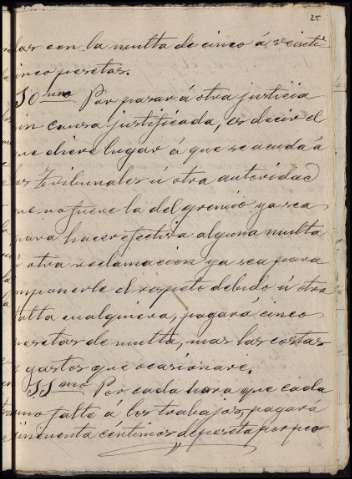 25
das con la multa de cinco á veinti
cinco pesetas.
10.ᵐᵒ Por pasar á otra justicia
sin causa justificada, es decir el
que diere lugar á que se acuda á
os Tribunales ú otra autoridad
que no fuere la del gremio ya sea
para hacer efectiva alguna multa
ú otra reclamacion ya sea para
imponerle el respeto debido ú otra
falta cualquiera, pagará cinco
pesetas de multa, mas las costas
y gastos que ocasionare.
11.ᵐᵒ Por cada hora que cada
uno falte á los trabajos, pagará
cincuenta céntimos de peseta por peo